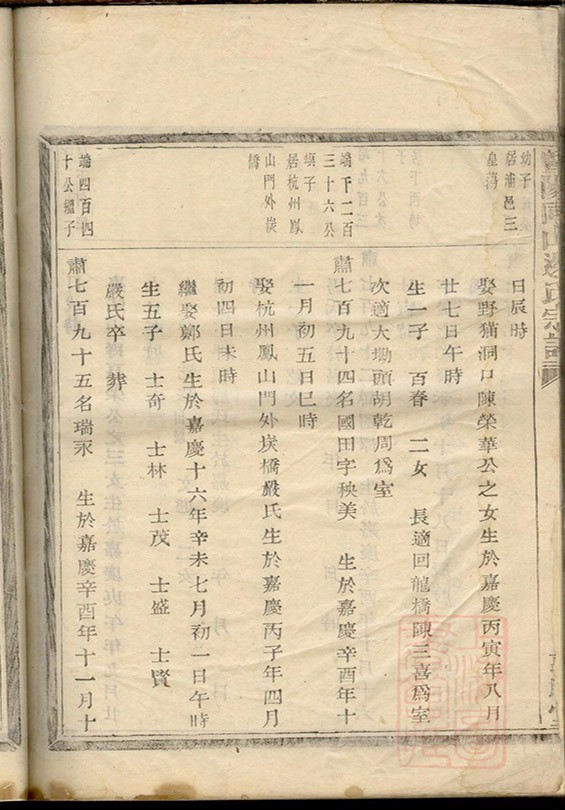 幼子
居浦邑三
皇海
端千二百
三十六公
墺子
居杭州鳳
山門外埃
橋
端四百四
十公繼子
日辰時
娶野猫洞口陳榮華公之女生於嘉慶丙寅年八月
廿七日午時
生一子 百春 二女 長適回龍橋陳三喜爲室
次適大坳頭胡乾周爲室
肅七百九十四名國田字秧美 生於嘉慶辛酉年十
一月初五日巳時
娶杭州鳳山門外埃橋嚴氏生於嘉慶丙子年四月
初四日未時
繼娶鄭氏生於嘉慶十六年辛未七月初一日午時
生五子 士奇 士林 士茂 士盛 士賢
嚴氏卒 葬
肅七百九十五名瑞永 生於嘉慶辛酉年十一月十